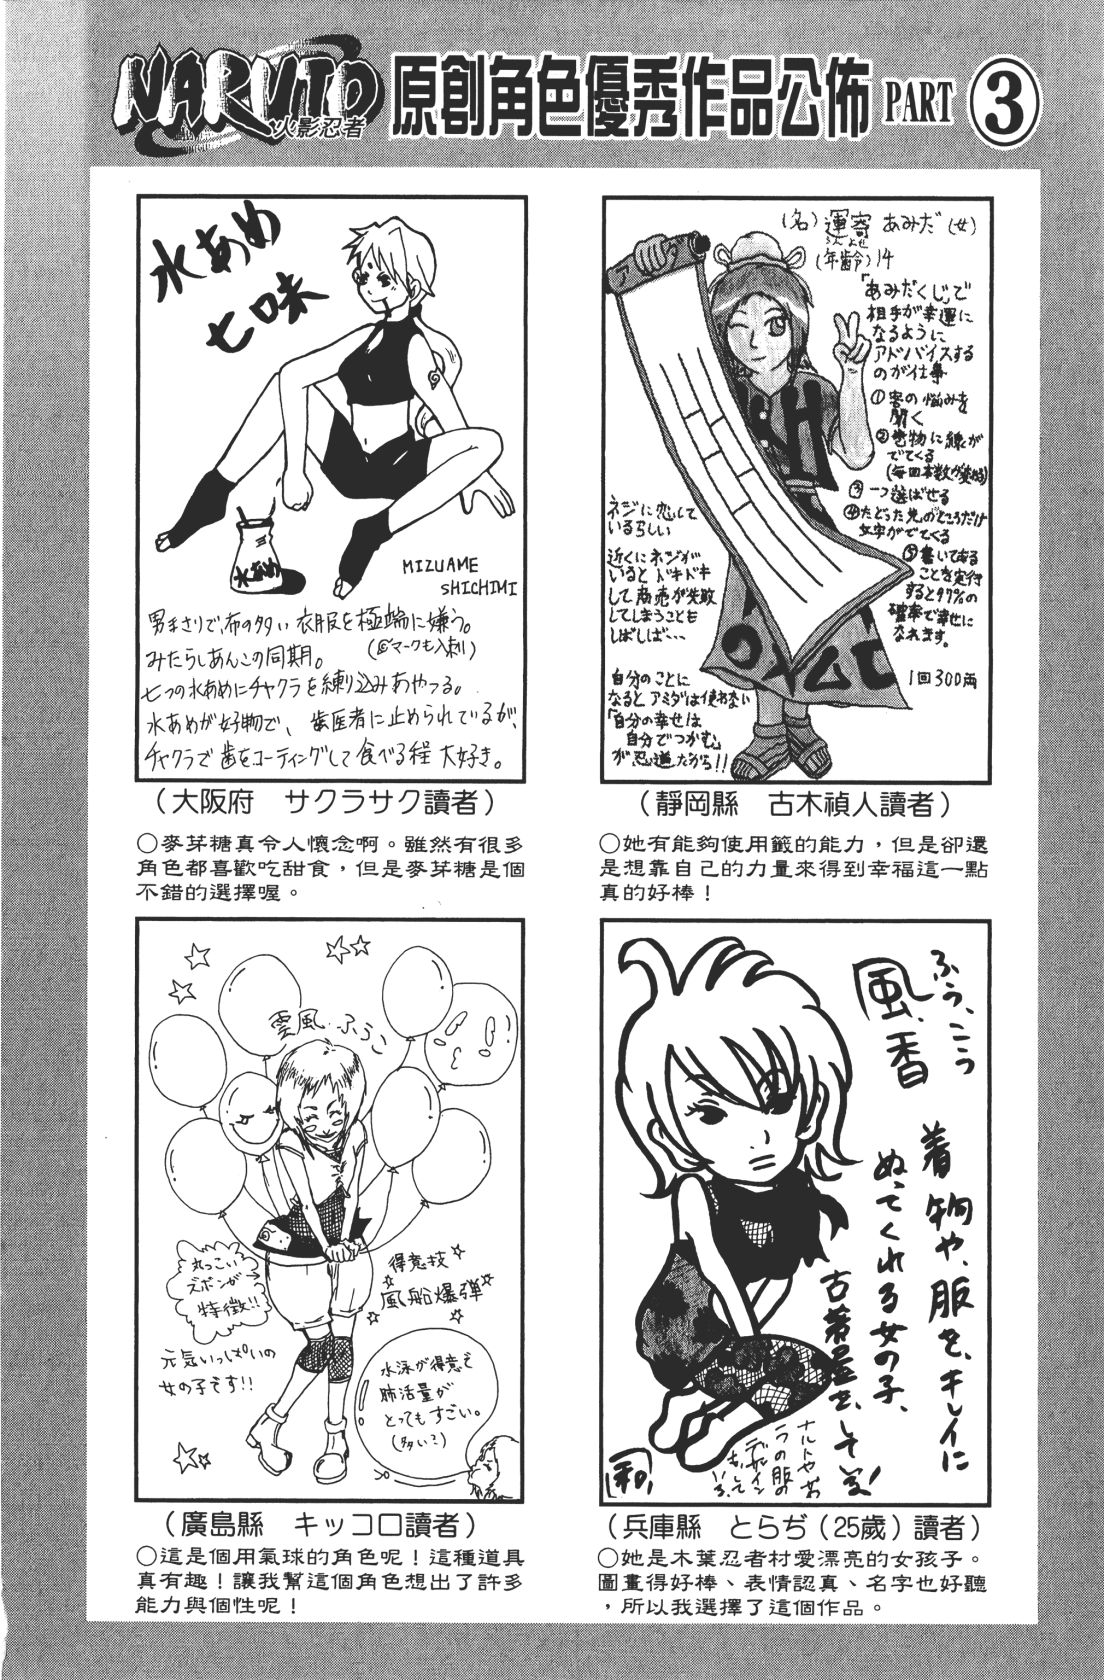 NARUTO
火影忍者
原創角色優秀作品公佈 PART ③
水あめ
七味
MIZUAME
SHICHIMI
男まさりで、布の多い衣服を極端に嫌う。
みたらしあんこの同期。
(マークも入刺)
七つの水あめにチャクラを練り込みあやつる。
水あめが好物で、歯医者に止められているが、
チャクラで歯をコーティングして食べる程大好き。
水あめ
(大阪府 サクラサク讀者)
○麥芽糖真令人懷念啊。雖然有很多
角色都喜歡吃甜食,但是麥芽糖是個
不錯的選擇喔。
(名) 運寄 あみだ (女)
うんよせ
(年齢) 14
「あみだくじ」で
相手が幸運に
なるように
アドバイスする
のが仕事
①客の悩みを
聞く
②巻物に線が
でてくる
(毎回本数が変わる)
③一つ選ばせる
④たどった先のところだけ
文字がでてくる
⑤書いてある
ことを実行
すると97%の
確率で幸せに
なれます。
1回300両
ネジに恋して
いるらしい
近くにネジが
いるとドキドキ
して商売が失敗
してしまうことも
しばしば…
自分のことに
なるとアミダは使わない
「自分の幸せは
自分でつかむ」
が忍道だから!!
(靜岡縣 古木禎人讀者)
○她有能夠使用籤的能力,但是卻還
是想靠自己的力量來得到幸福這一點
真的好棒!
雲風 ふうこ
丸っこい
ズボンが
特徴!!
得意技
風船爆弾
元気いっぱいの
女の子です!!
水泳が得意で
肺活量が
とってもすごい。
(多い?)
(廣島縣 キッコロ讀者)
○這是個用氣球的角色呢!這種道具
真有趣!讓我幫這個角色想出了許多
能力與個性呢!
ふう、こう
風、香
着物や、服を、キレイに
ぬってくれる女の子、
古着屋を、している!
ナルトやサク
ラの服の
デザイン
も、して
いる、
(兵庫縣 とらぢ(25歲)讀者)
○她是木葉忍者村愛漂亮的女孩子。
圖畫得好棒、表情認真、名字也好聽
,所以我選擇了這個作品。